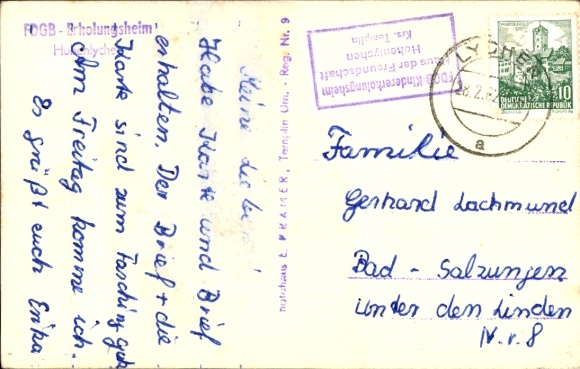 FDGB - Erholungsheim
Hohenlychen
Meine Lieben!
Habe Karte und Brief
erhalten. Der Brief + die
Karte sind zum Fasching
Am Freitag komme ich.
Es grüßt euch Erika
E. PRAMER, Templin Um. - Reg. Nr. 9
FDGB-Kindererholungsheim
Haus der Freundschaft
Hohenlychen
Krs. Templin
LYCHEN
a
10
DEUTSCHE
DEMOKRATISCHE REPUBLIK
Familie
Gerhard Lachmund
Bad - Salzungen
Unter den Linden
Nr. 8